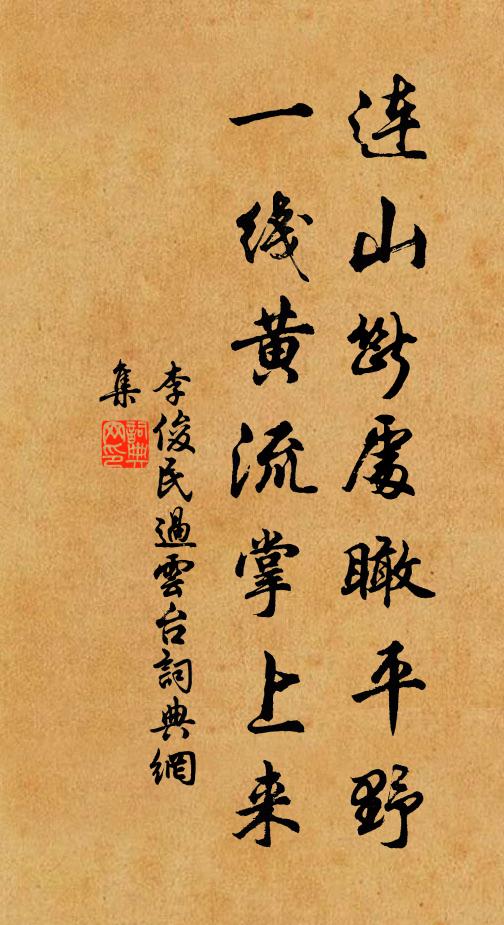 連山斷處瞰平野
一线黄流掌上来
李俊民過雲台詞典網
集
詞典网印